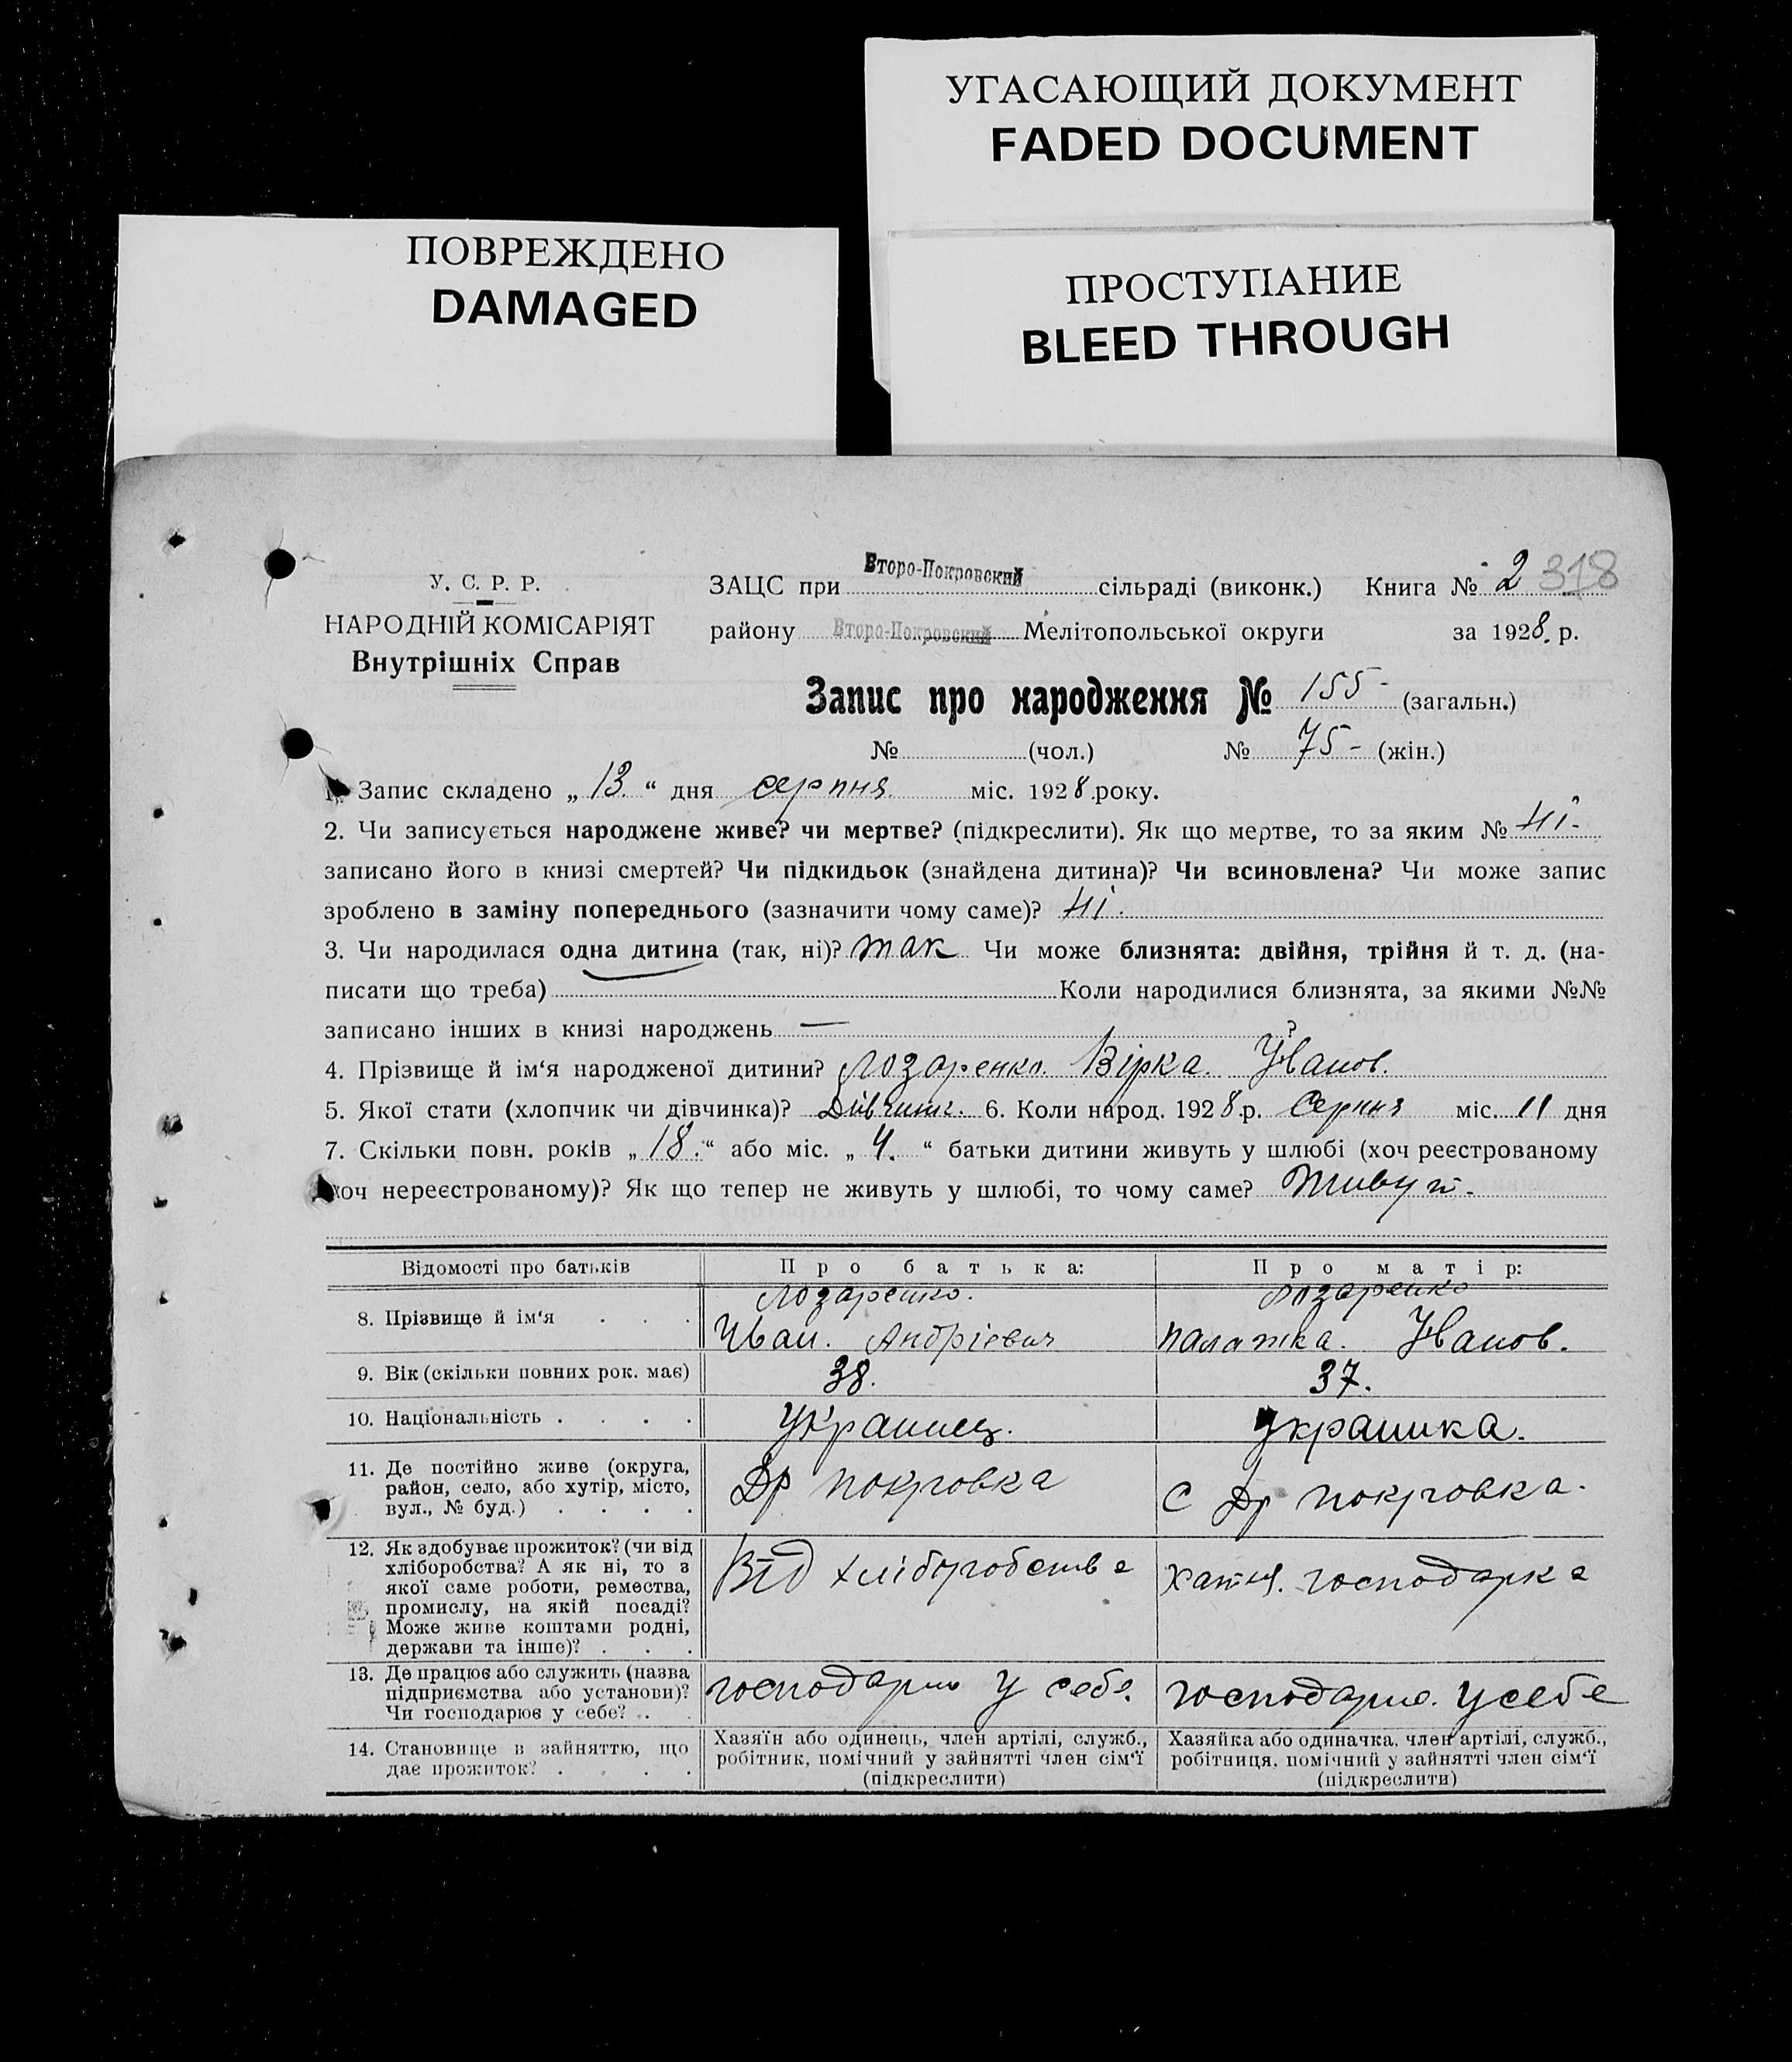 УГАСАЮЩИЙ ДОКУМЕНТ
FADED DOCUMENT
ПОВРЕЖДЕНО
DAMAGED
ПРОСТУПАНИЕ
BLEED THROUGH
У. С. Р. Р.
НАРОДНІЙ КОМІСАРІЯТ
Внутрішніх Справ
ЗАЦС при Второ-Покровский сільраді (виконк.) Книга № 2 318
району Второ-Покровский Мелітопольської округи за 1928. р.
Запис про народження № 155 - (загальн.)
№ (чол.) № 75 - (жін.)
1. Запис складено „ 13. “ дня серпня міс. 1928 року.
2. Чи записується народжене живе? чи мертве? (підкреслити). Як що мертве, то за яким № ні -
записано його в книзі смертей? Чи підкидьок (знайдена дитина)? Чи всиновлена? Чи може запис
зроблено в заміну попереднього (зазначити чому саме)? ні.
3. Чи народилася одна дитина (так, ні)? так Чи може близнята: двійня, трійня й т. д. (на-
писати що треба) Коли народилися близнята, за якими №№
записано інших в книзі народжень — ?
4. Прізвище й ім‘я народженої дитини? Лозаренко. Вірка. Иванов.
5. Якої стати (хлопчик чи дівчинка)? Дівчинк. 6. Коли народ. 1928.р. Серпня міс. 11 дня
7. Скільки повн. років „ 18. “ або міс. „ 4. “ батьки дитини живуть у шлюбі (хоч реєстрованому
хоч нереєстрованому)? Як що тепер не живуть у шлюбі, то чому саме? Живут.
Відомості про батьків Про батька: Про матір:
Лозаренко. Лозаренко
8. Прізвище й ім‘я . . . Иван. Андрієвич Палажка. Иванов.
9. Вік (скільки повних рок. має) 38. 37.
10. Національність . . . . Украинец. Украинка.
11. Де постійно живе (округа,
район, село, або хутір, місто,
вул., № буд.) . . . .
Др Покровка С Др Покровка.
12. Як здобуває прожиток? (чи від
хліборобства? А як ні, то з
якої саме роботи, ремества,
промислу, на якій посаді?
Може живе коштами родні,
держави та інше)? . . .
Від хліборобства Хатня. господарка
13. Де працює або служить (назва
підприємства або установи)?
Чи господарює у себе? . .
господарю у себе. господарю. у себе
14. Становище в зайняттю, що
дає прожиток? . . . .
Хазяїн або одинець, член артілі, служб.,
робітник, помічний у зайнятті член сім‘ї
(підкреслити)
Хазяйка або одиначка, член артілі, служб.,
робітниця, помічний у зайнятті член сім‘ї
(підкреслити)